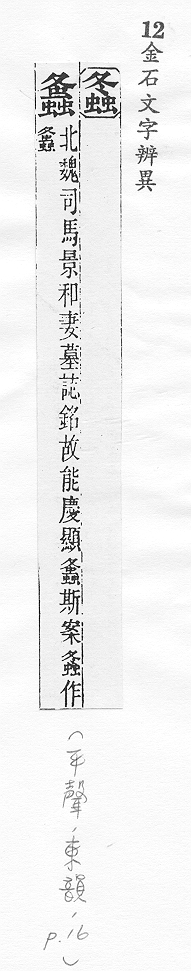 12金石文字辨異
螽
螽
北魏司馬景和妻墓誌銘故能慶顯螽斯案螽作
螽
（平聲，東韻，p.16）